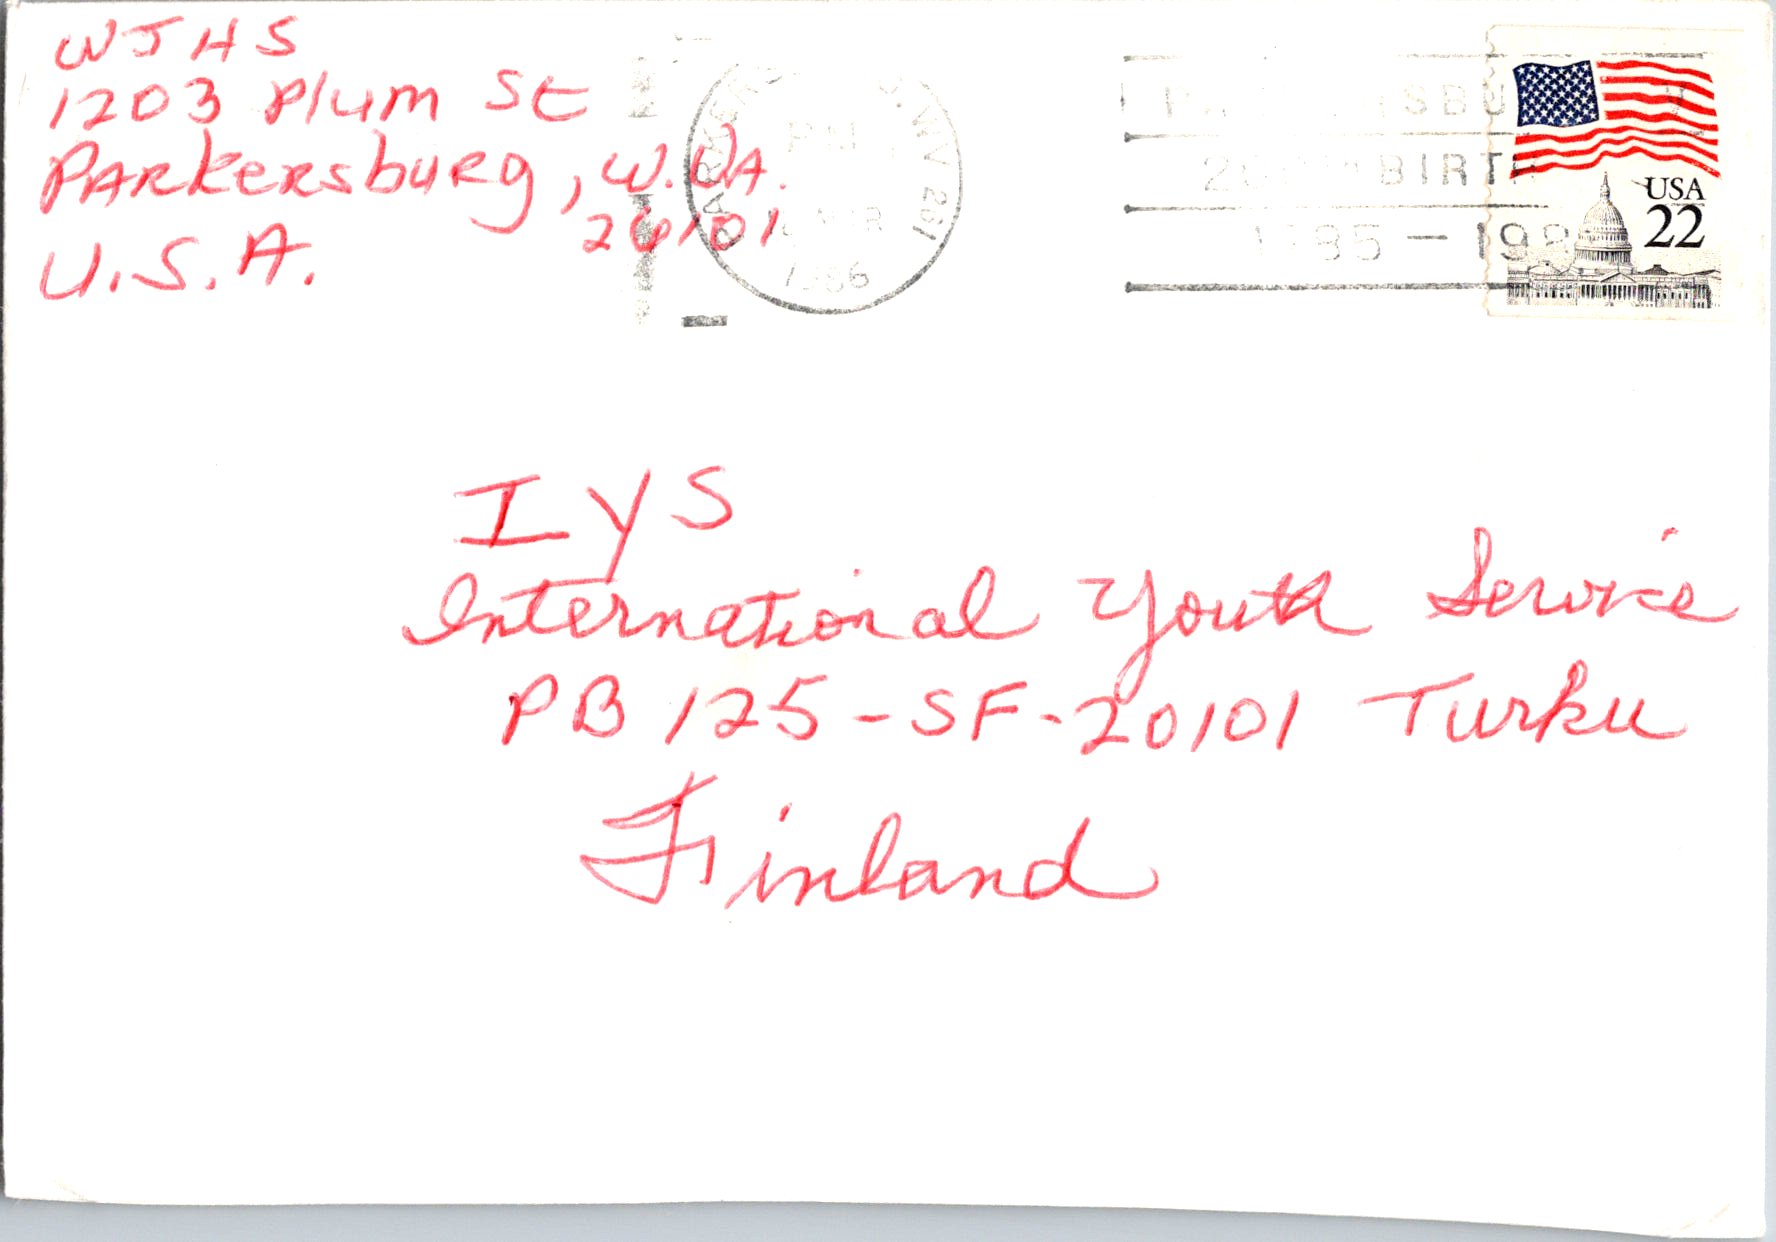 WJHS
1203 Plum St
Parkersburg, W.VA.
26101
U.S.A.
PM
1986
WV 261
BIRTH
USA
22
IYS
International Youth Service
PB 125-SF-20101 Turku
Finland